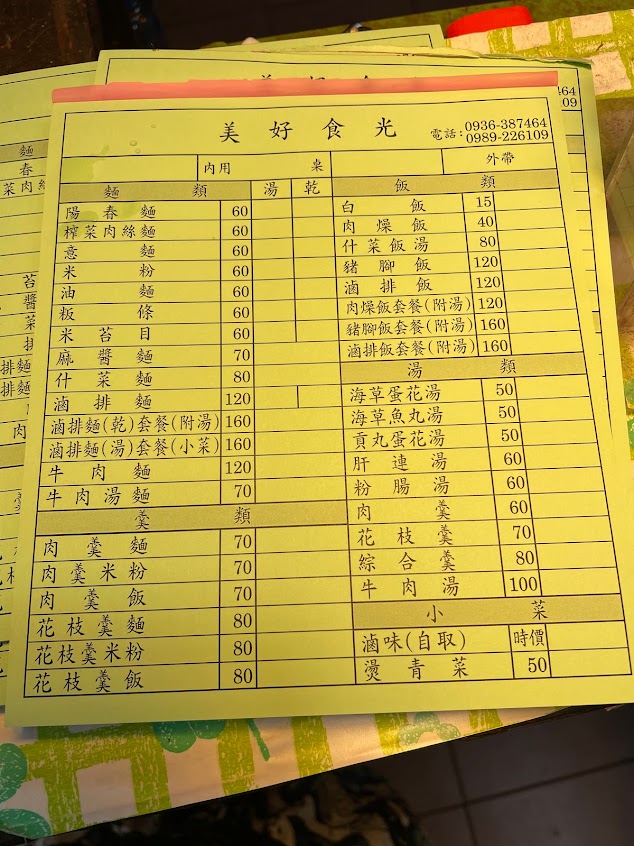 美好食光
電話:0936-387464
0989-226109
內用 桌 外帶
麵類 湯 乾
陽春麵 60
榨菜肉絲麵 60
意麵 60
米粉 60
油麵 60
粄條 60
米苔目 60
麻醬麵 70
什菜麵 80
滷排麵 120
滷排麵(乾)套餐(附湯) 160
滷排麵(湯)套餐(小菜) 160
牛肉麵 120
牛肉湯麵 70
羹類
肉羹麵 70
肉羹米粉 70
肉羹飯 70
花枝羹麵 80
花枝羹米粉 80
花枝羹飯 80
飯類
白飯 15
肉燥飯 40
什菜飯湯 80
豬腳飯 120
滷排飯 120
肉燥飯套餐(附湯) 120
豬腳飯套餐(附湯) 160
滷排飯套餐(附湯) 160
湯類
海草蛋花湯 50
海草魚丸湯 50
貢丸蛋花湯 50
肝連湯 60
粉腸湯 60
肉羹 60
花枝羹 70
綜合羹 80
牛肉湯 100
小菜
滷味(自取) 時價
燙青菜 50